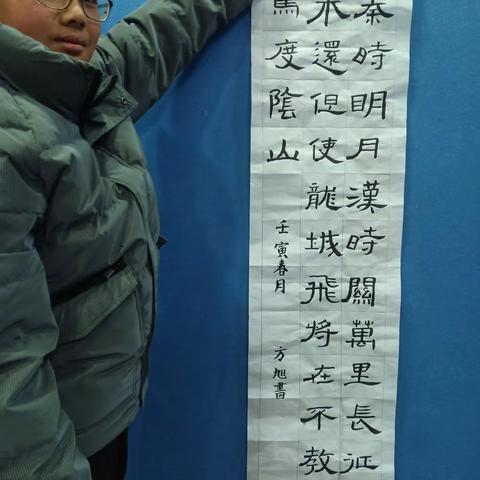 秦時明月漢時關萬里長征
未還但使龍城飛將在不教
馬度陰山
壬寅春月
方旭書